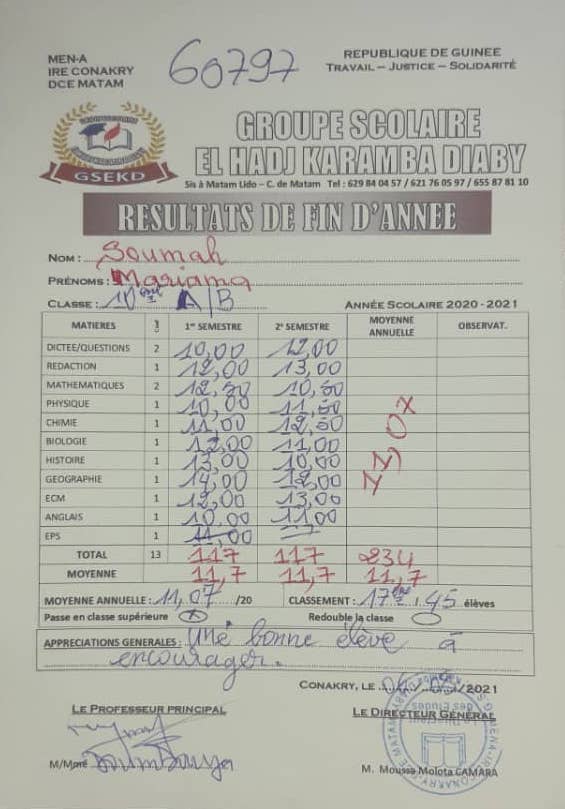 MEN-A
IRE CONAKRY
DCE MATAM
60797
REPUBLIQUE DE GUINEE
TRAVAIL – JUSTICE – SOLIDARITÉ
GSEKD
GROUPE SCOLAIRE
EL HADJ KARAMBA DIABY
Sis à Matam Lido – C. de Matam Tel : 629 84 04 57 / 621 76 05 97 / 655 87 81 10
RESULTATS DE FIN D'ANNEE
NOM : Soumah
PRÉNOMS : Mariama
CLASSE : 10ème A/B ANNÉE SCOLAIRE 2020 - 2021
MATIERES 1er SEMESTRE 2e SEMESTRE MOYENNE ANNUELLE OBSERVAT.
DICTEE/QUESTIONS 2 10,00 12,00
REDACTION 1 12,00 13,00
MATHEMATIQUES 2 12,50 10,50
PHYSIQUE 1 10,00 11,50
CHIMIE 1 11,00 12,50
BIOLOGIE 1 12,00 11,00
HISTOIRE 1 13,00 10,00
GEOGRAPHIE 1 14,00 12,00
ECM 1 12,00 13,00
ANGLAIS 1 10,00 11,00
EPS 1 11,00
TOTAL 13 117 117 234
MOYENNE 11,7 11,7 11,7
MOYENNE ANNUELLE : 11,07 /20 CLASSEMENT : 17ème / 45 élèves
Passe en classe supérieure X Redouble la classe
APPRECIATIONS GENERALES : Une bonne élève à
encourager.
CONAKRY, LE /2021
LE PROFESSEUR PRINCIPAL
LE DIRECTEUR GÉNÉRAL
M/Mme
M. Moussa Molota CAMARA